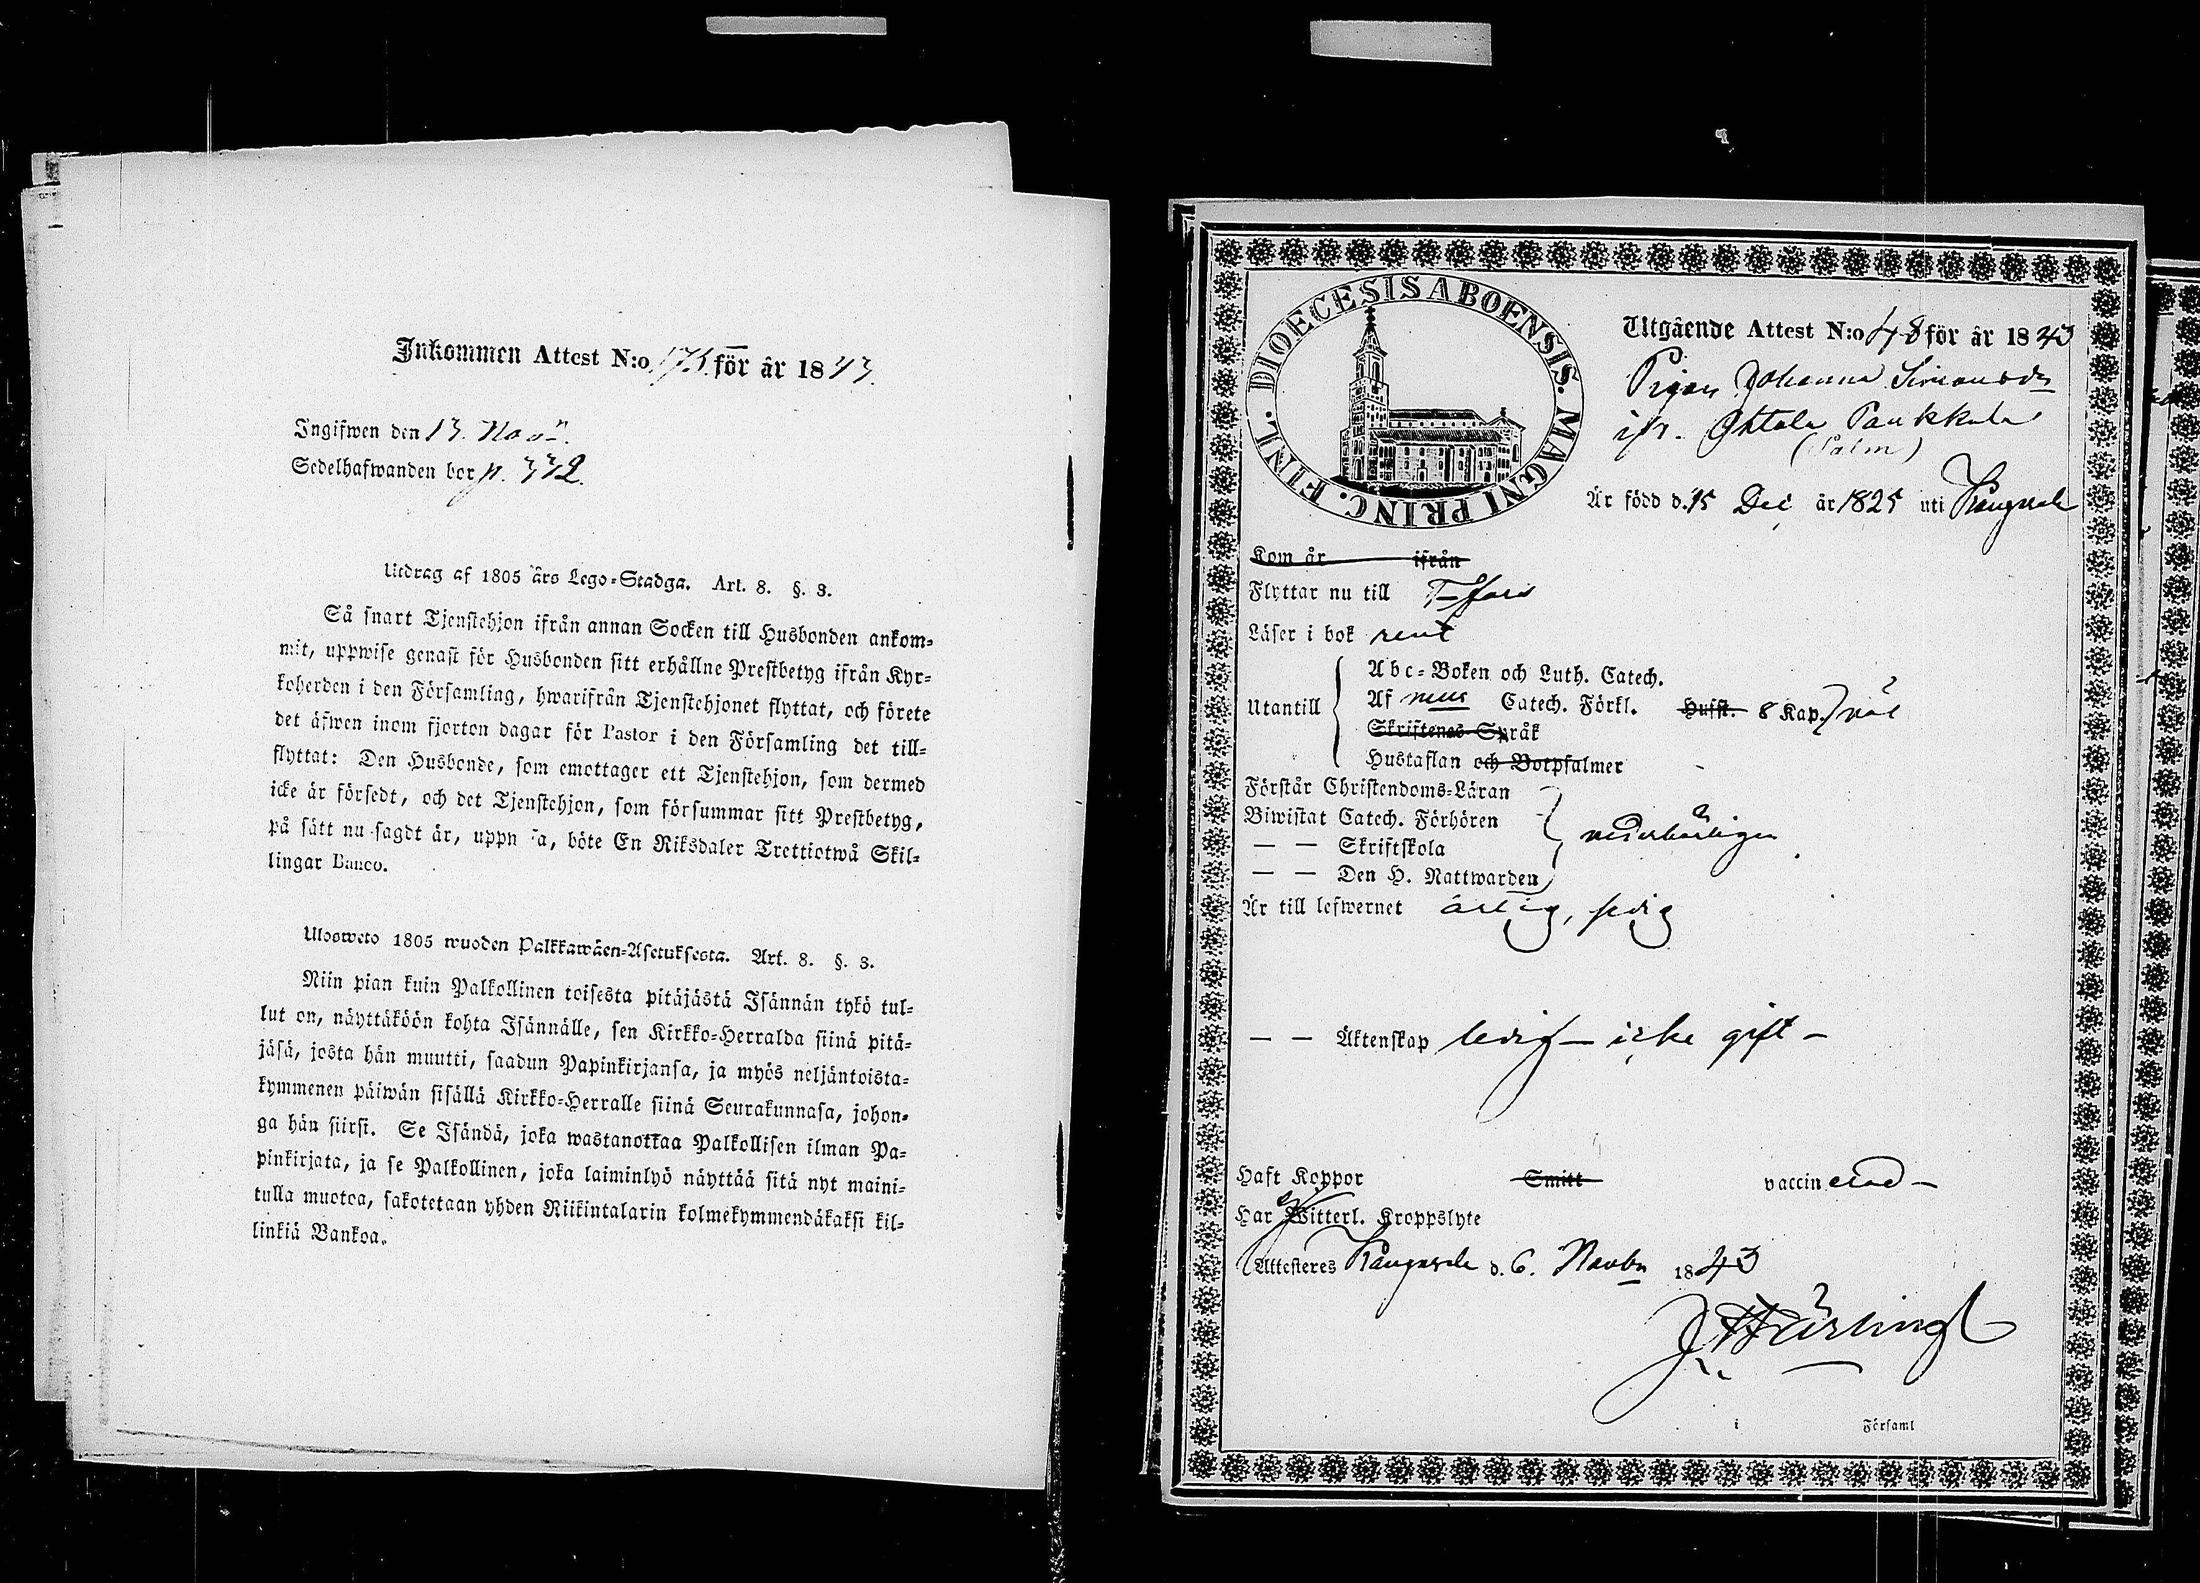 Inkommen Attest N:o 175 för år 1843.
Ingifwen den 13. Nov.
Sedelhafwanden bor p. 332.
Utdrag af 1805 års Lego-Stadga. Art. 8. §. 3.
Så snart Tjenstehjon ifrån annan Socken till Husbonden ankom-
mit, uppwise genast för Husbonden sitt erhållne Prestbetyg ifrån Kyr-
koherden i den Församling, hwarifrån Tjenstehjonet flyttat, och förete
det äfwen inom fjorton dagar för Pastor i den Församling det till-
flyttat: Den Husbonde, som emottager ett Tjenstehjon, som dermed
icke är försedt, och det Tjenstehjon, som försummar sitt Prestbetyg,
på sätt nu sagdt är, uppn a, böte En Riksdaler Trettiotwå Skil-
lingar Banco.
Ulosweto 1805 wuoden Palkkawäen-Asetuksesta. Art. 8. §. 3.
Niin pian kuin Palkollinen toisesta pitäjästä Isännän tykö tul-
lut on, näyttäköön kohta Isännälle, sen Kirkko-Herralda siinä pitä-
jäsä, josta hän muutti, saadun Papinkirjansa, ja myös neljäntoista-
kymmenen päiwän sisällä Kirkko-Herralle siinä Seurakunnasa, johon-
ga hän siirsi. Se Isändä, joka wastanottaa Palkollisen ilman Pa-
pinkirjata, ja se Palkollinen, joka laiminlyö näyttää sitä nyt maini-
tulla muotoa, sakotetaan yhden Riikintalarin kolmekymmendäkaksi kil-
linkiä Bankoa.
DIOECESIS ABOENSIS. MAGNI PRINC. FINL.
Utgående Attest N:o 48 för år 1843
Pigan Johanna Simonsdr
ifr. Ohtola Paukkula
(Palm)
Är född d. 15 Dec år 1825 uti Kangasala
Kom år ifrån
Flyttar nu till T-fors
Läser i bok rent
Abc-Boken och Luth. Catech.
Utantill Af Catech. Förkl. Hufst. 8 Kap. väl
Skriftenes Språk
Hustaflan och Botpsalmer
Förstår Christendoms-Läran
Biwistat Catech. Förhören nödorfteligen
— — Skriftskola
— — Den H. Nattwarden
Är till lefwernet ärlig, sedig
— — Äktenskap ledig – icke gift –
Haft Koppor Smitt vaccinerad –
Har ej Witterl. Kroppslyte
Attesteres Kangasala d. 6. Novbr 1843
i Församl